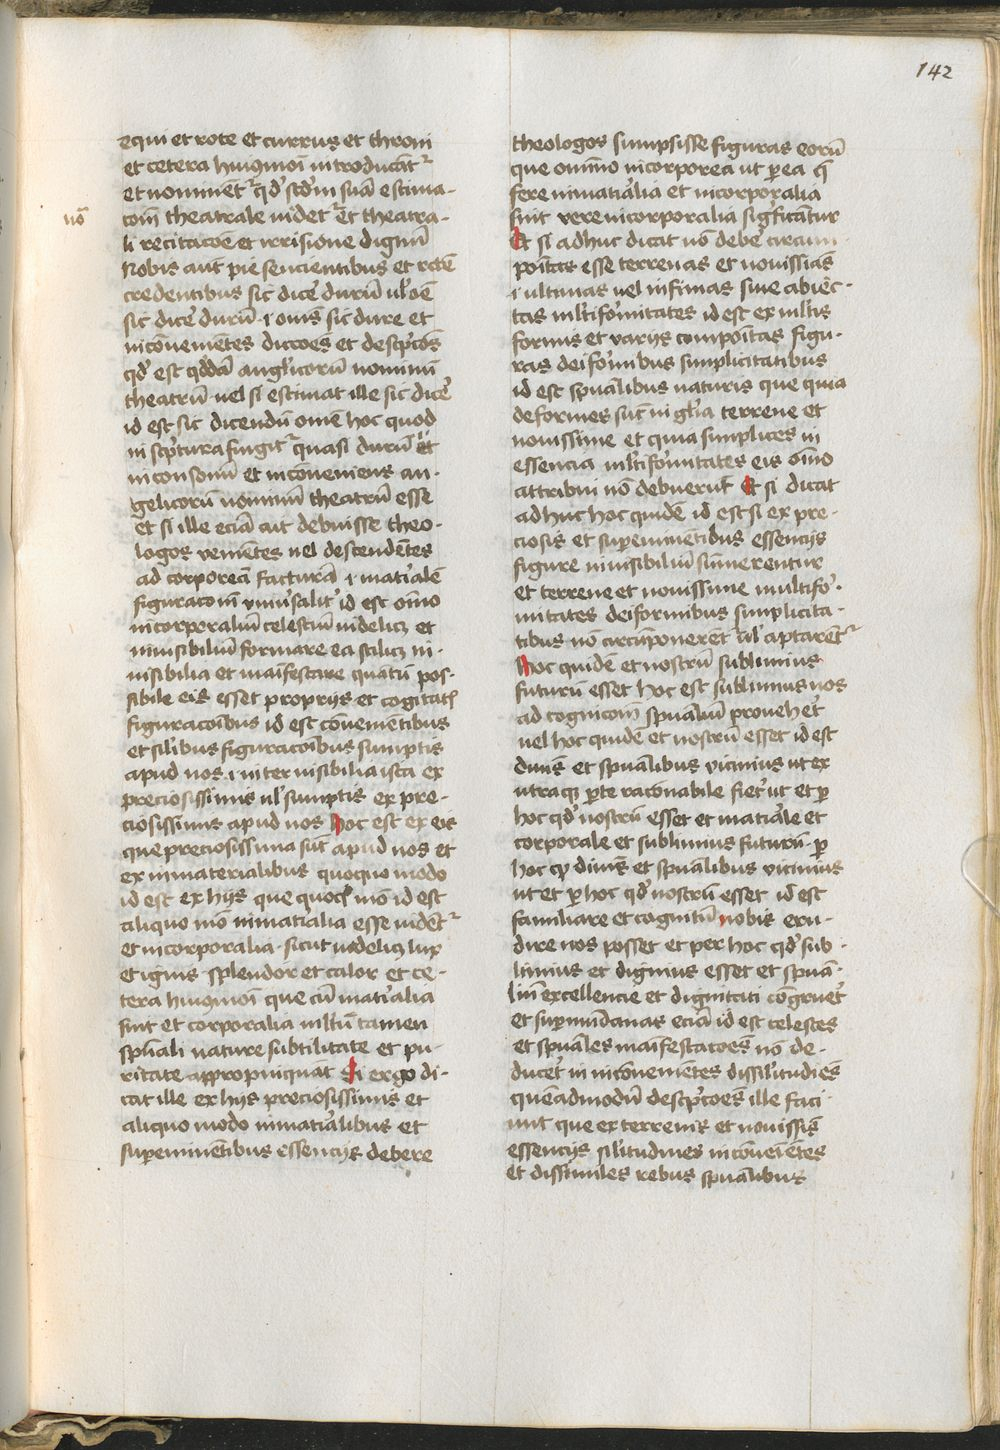 142
equi et rote et currus et throni
et cetera huiusmoi introducūt᷑
et nominēt᷑ qd̓ scd̓m suā estima-
com̄ theatrale videt᷑ Et theatra-
nō
li recitacōe et irrisione dignū
Nobis aut̄ pie sencientibus et rcē
credentibus sic dice̓ durū ul̓ oē
sic dice̓ durū .i. ovis sic dure et
incōvenientes dictoēs et descpc̓ōes
qd̓ est qd̓dā angl̓icorū nominū
theatrū vel si estimat ille sic dice̓
id est sic dicendū omē hoc quod
in scp̓tura fingit᷑ quasi durū et
inconsonū et incōveniens an-
gelicorū nominū theatrū esse
et si ille eciā ait debuisse theo-
logos venientes vel descendētes
ad corporeā facturā .i. mat̓ialē
figuracom̄ univ̓salit̓ id est om̄o
incorporaliū celestiū videlicz et
invisibiliū formare ea scilicz in-
visibilia et maīfestare quātū pos-
sibile eis esset proprijs et cogitatꝭ
figuracoībus id est cōvenientibus
et sil̓ibus figuracoībus sumptis
apud nos .i. inter visibilia ista ex
preciosissimis ul̓ sumptis ex pre-
ciosissimis apud nos hoc est ex eis
que preciosissima sūt apud nos et
ex inmaterialibus quoquo modo
id est ex hijs que quoqꝫ mō id est
aliquo mō inmat̓ialia esse vidēt᷑
et incorporalia . sicut videlicz lux
et ignis splendor et calor et ce-
tera huiusmoī que cū mat̓ialia
sint et corporalia ml̓tū tamen
spūali nature subtilitate et pu-
ritate appropinquāt Si ergo di-
cat ille ex hijs preciosissimis et
aliquo modo inmat̓ialibus et
suꝑeminētibus essencijs debere
theologos sumpsisse figuras eorū
que omīno incorporea ut ꝑ ea q̄
fere inmat̓ialia et incorporalia
sint vere incorporalia sig̓ficantur
Et si adhuc dicat nō debe̓ circum-
poīt̄as esse terrenas et novissīas
.i. ultimas vel infimas sive abiec-
tas ml̓tifo̓mitates id est ex ml̓tis
formis et varijs compoīt̄as figu-
ras deifo̓mibus simplicitatibus
id est spūalibus naturis que quia
deformes sūt in gl̓ia terrene et
novissime et quia simplices in
essencia ml̓tifo̓mitates eis om̄o
attribui nō debuerūt Et si dicat
adhuc hoc quidē id est si ex pre-
ciosis et suꝑeminētibus essencijs
figure invisibiliū sumerentur
et terrene et novissime multifo̓-
mitates deiformibus simplicita-
tibus nō circūponerēt᷑ ul̓ aptarēt᷑
hoc quidē et nostrū sublimius
futurū esset hoc est sublimius nos
ad cognicom̄ spūaliū proveh̓et
vel hoc quidē et nostrū esset id est
divīs et spūalibus vicinius ut ex
utraqꝫ ꝑte racōnabile fiet̓ ut et ꝑ
hoc qd̓ nostrū esset et mat̓iale et
corporale et sublimius futurū . ꝑ
hoc ꝙ divīs et spūalibus vicinius
ut et ꝑ hoc qd̓ nostrū esset id est
familiare et cognitū nobis eru-
dire nos posset et per hoc qd̓ sub-
limius et dignius esset et spūa-
liū excellencie et dignitati cōgruet̓
et suꝑmūdanas eciā id est celestes
et spūales maīfestacoēs nō de-
ducet̓ in incōvenientes dissil̓itudīes
quēadmodū descp̓coēs ille faci-
unt que ex terrenis et novissīs
essencijs sil̓itudines incōveniētes
et dissimiles rebus spūalibus